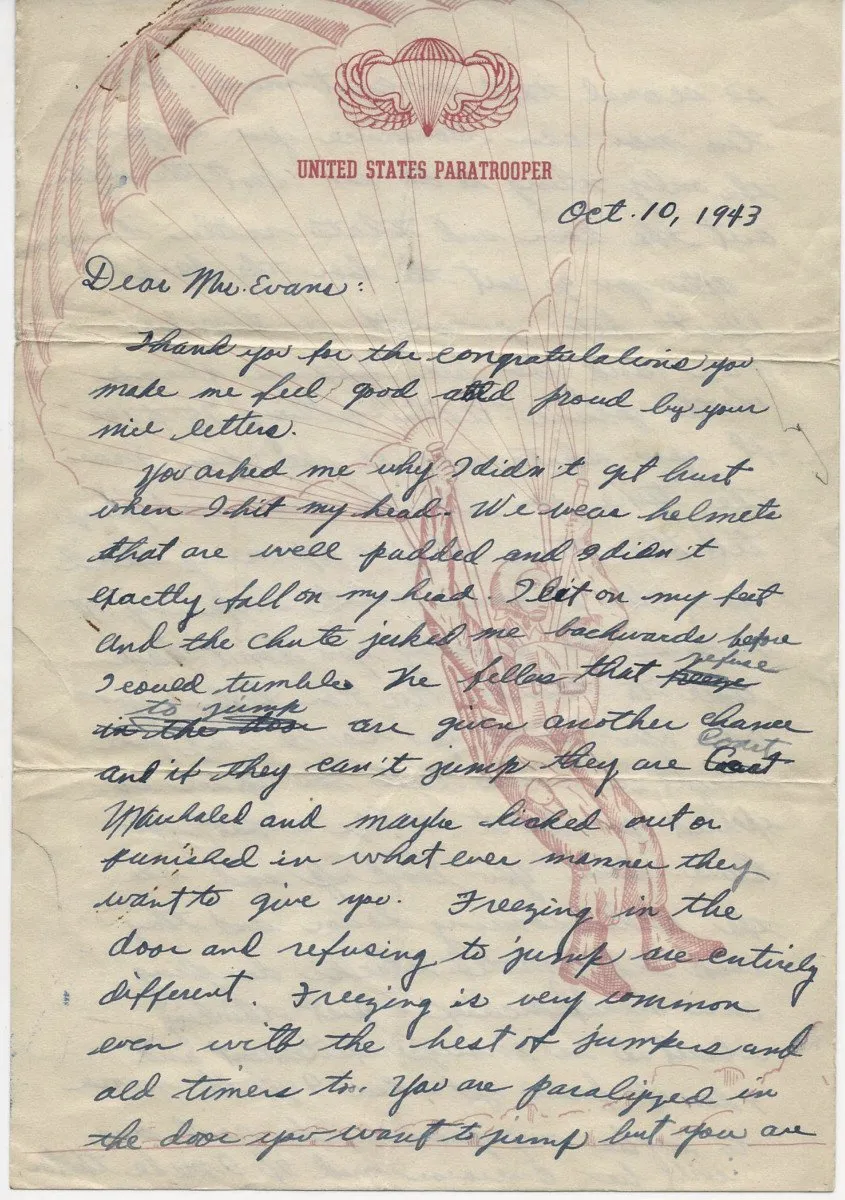 UNITED STATES PARATROOPER
Oct. 10, 1943
Dear Mr. Evans:
Thank you for the congratulations you
make me feel good and proud by your
nice letters.
You asked me why I didn't get hurt
when I hit my head. We wear helmets
that are well padded and I didn't
exactly fall on my head. I lit on my feet
and the chute jerked me backwards before
I could tumble. The fellas that freeze refuse
in the door to jump are given another chance
and if they can't jump they are Court
Marshaled and maybe kicked out or
punished in what ever manner they
want to give you. Freezing in the
door and refusing to jump are entirely
different. Freezing is very common
even with the best of jumpers and
old timers to. You are paralyzed in
the door you want to jump but you are